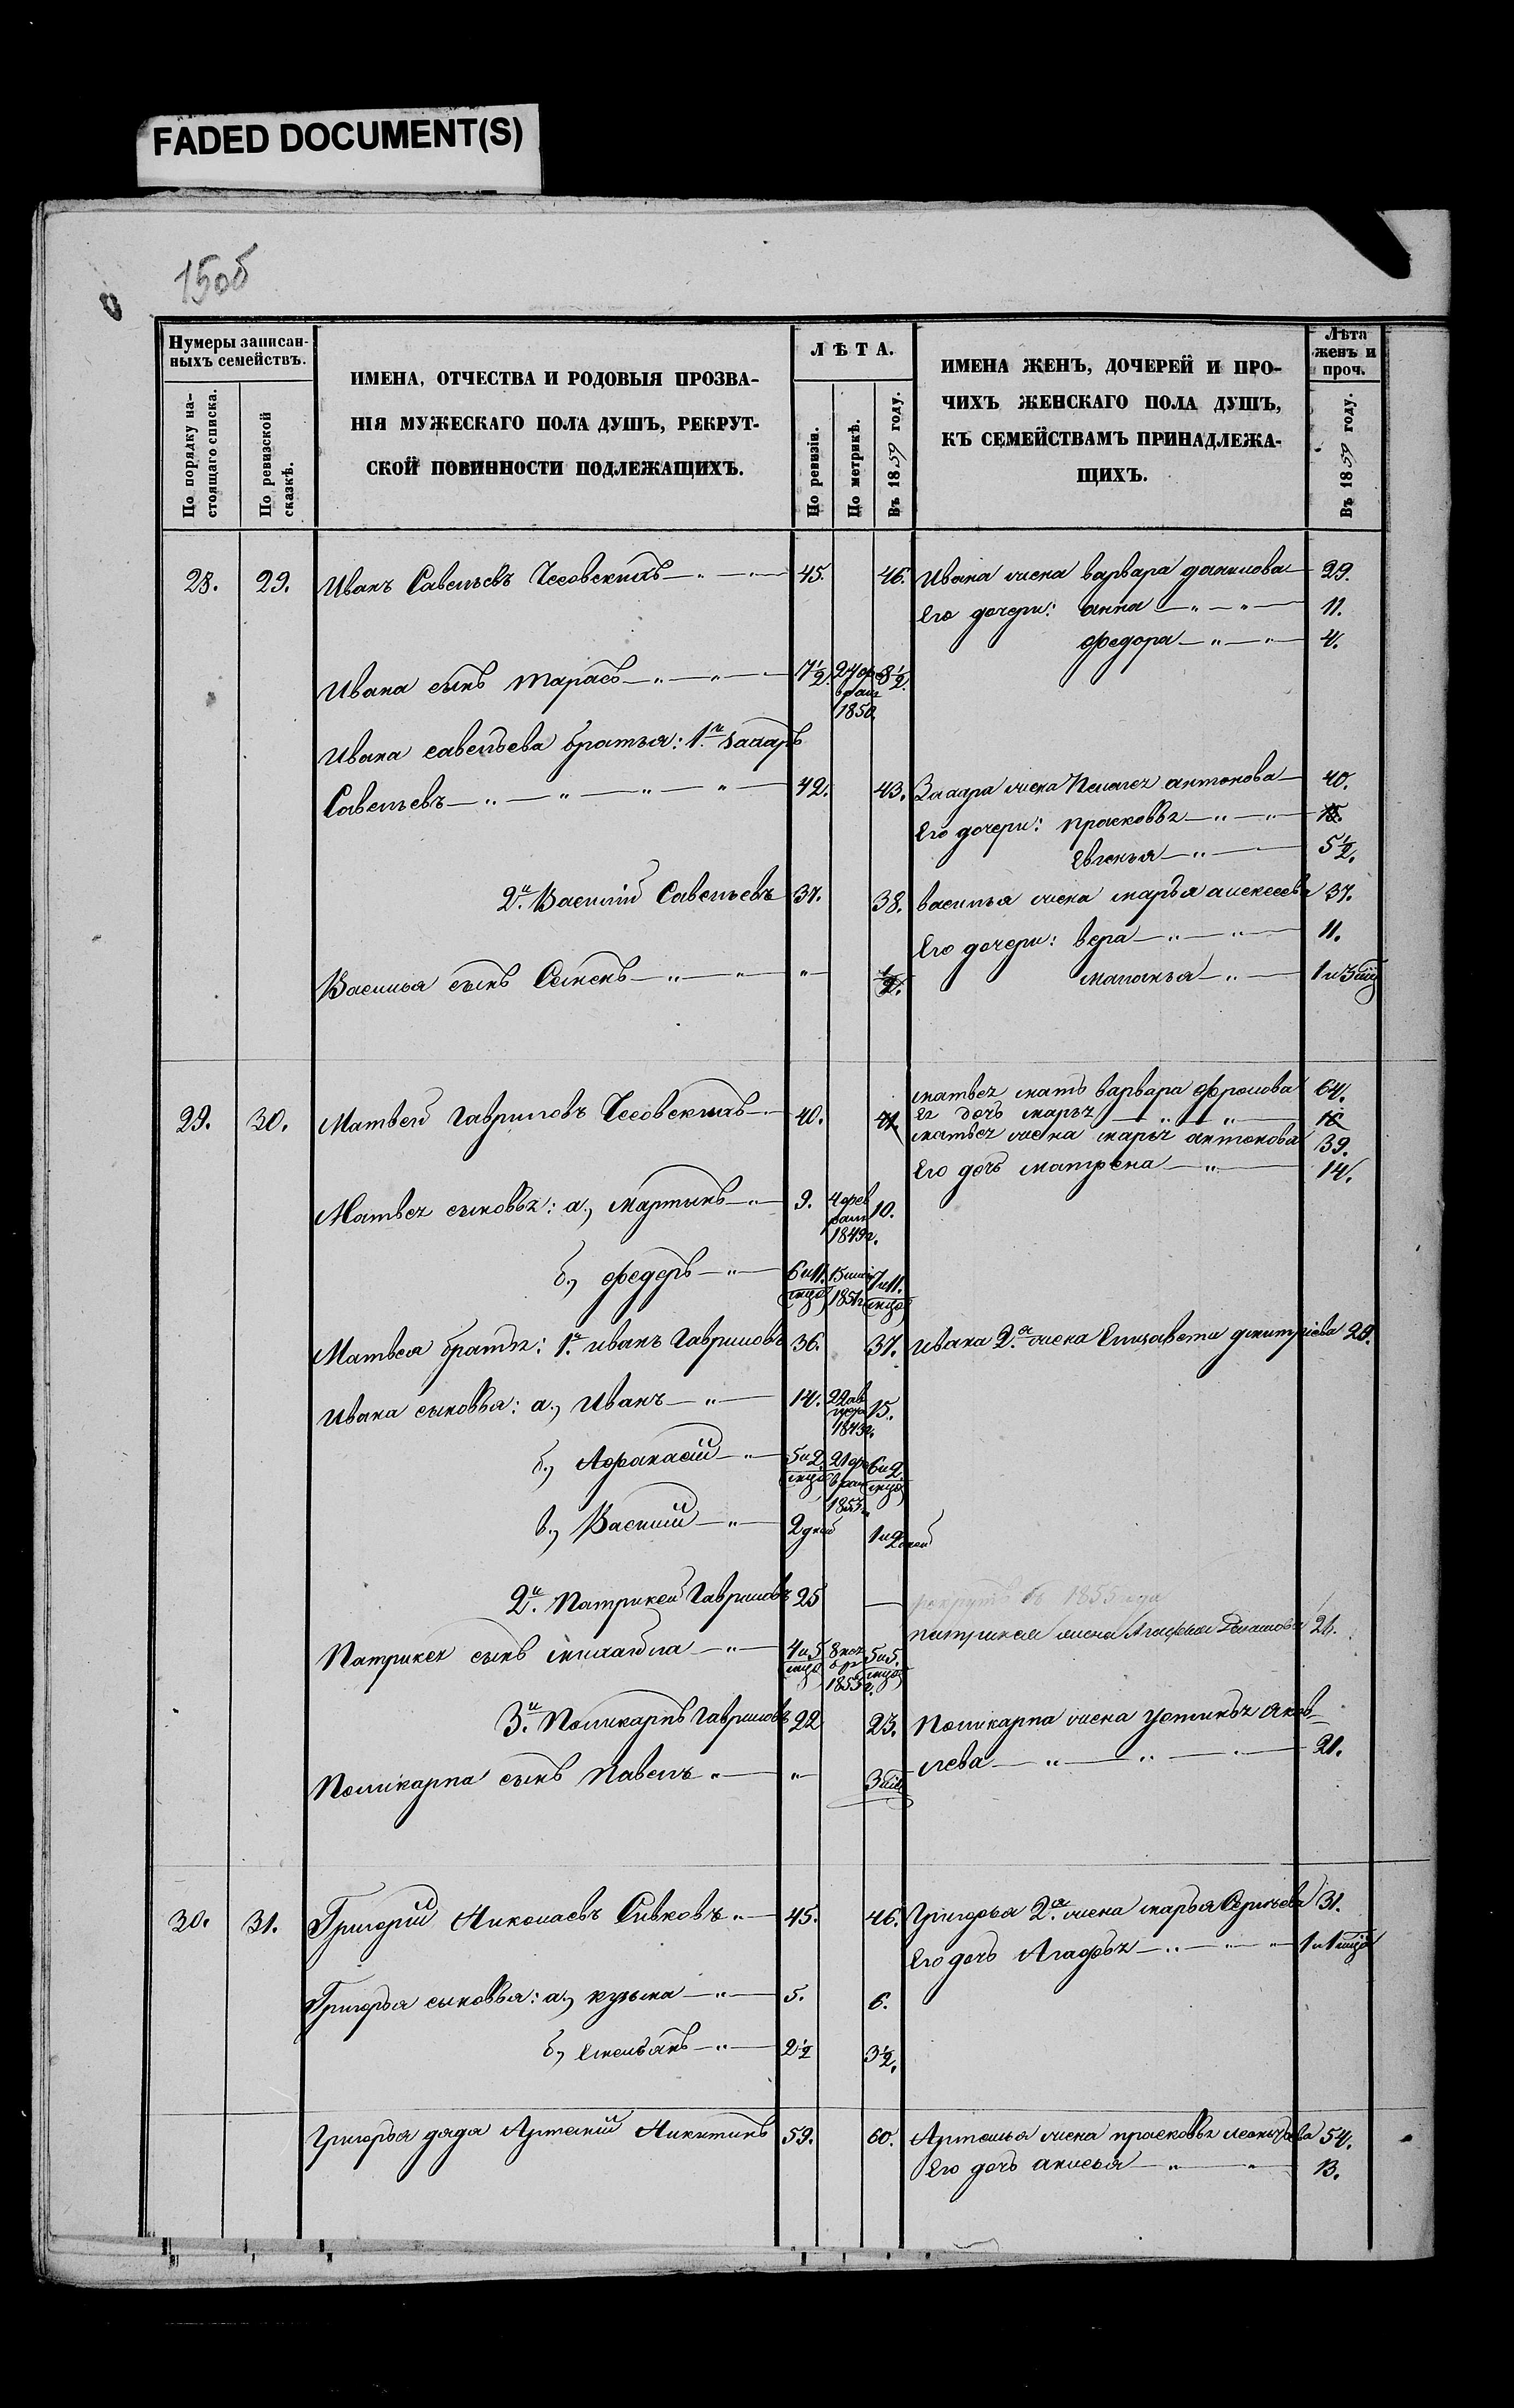 FADED DOCUMENT(S)
150б
Нумеры записан-
ныхъ семействъ.
По порядку на-
стоящаго списка.
По ревизской
сказкѣ.
ИМЕНА, ОТЧЕСТВА И РОДОВЫЯ ПРОЗВА-
НІЯ МУЖЕСКАГО ПОЛА ДУШЪ, РЕКРУТ-
СКОЙ ПОВИННОСТИ ПОДЛЕЖАЩИХЪ.
ЛѢТА.
По ревизіи.
По метрикѣ.
Въ 1859 году.
ИМЕНА ЖЕНЪ, ДОЧЕРЕЙ И ПРО-
ЧИХЪ ЖЕНСКАГО ПОЛА ДУШЪ,
КЪ СЕМЕЙСТВАМЪ ПРИНАДЛЕЖА-
ЩИХЪ.
Лѣта
женъ и
проч.
Въ 1859 году.
28. 29. Иванъ Савельевъ 45. 46. Ивана жена варвара данилова 29.
Его дочери: анна 11.
федора 4.
Ивана сынъ тарасъ 7½. 24 фе враля 1850 8½.
Ивана савельева братья: 1й Захаръ
Савельевъ 42. 43. Захара жена Пелагея антонова 40.
Его дочери: прасковья
Евгенья 5½.
2й. Василій Савельевъ 37. 38. василья жена марья алексеева 37.
Его дочери: вера 11.
Василья сынъ Семенъ ½. маланья 1 и 3 мц
29. 30. Матвей Гавриловъ 40. 41. матвея мать варвара фролова 64.
Ея дочь марья
матвея жена марья антонова 39.
Его дочь матрена 14.
Матвея сыновья: а, мартынъ 9. 4 фев раля 1849г. 10.
б, федоръ 6 и 11. мцо 1851г 7 и 11. мцо
Матвея братья: 1й. иванъ Гавриловъ 36. 37. ивана 2я жена Елизавета дмитріева 28.
Ивана сыновья: а, Иванъ 14. 22 ав густа 1843г. 15.
б, Афанасій 5 и 2. мцо 21 фе враля 1853 6 и 2. мцо
в, Василий 2 дней 1 и 2 дней
2й. Патрикей Гавриловъ 25 рекрутъ въ 1855 года
патрикея жена Агафья 21.
Патрикея сынъ михаила 4 и 5 мцо 8 ноя бря 1853г. 5 и 5. мцо
3й. Поликарпъ Гавриловъ 22 23. Поликарпа жена устинья яков-
лева 21.
Поликарпа сынъ Павелъ 3 мц
30. 31. Григорій Николаевъ Сивковъ 45. 46. Григорья 2я жена марья Сергеева 31.
Его дочь Агафья 1 и 1 мцо
Григорья сыновья: а, кузьма 5. 6.
б, емельянъ 2½ 3½.
Григорья дядя Артемій Никитинъ 59. 60. Артемья жена прасковья леонтьева 54.
Его дочь анисья 13.